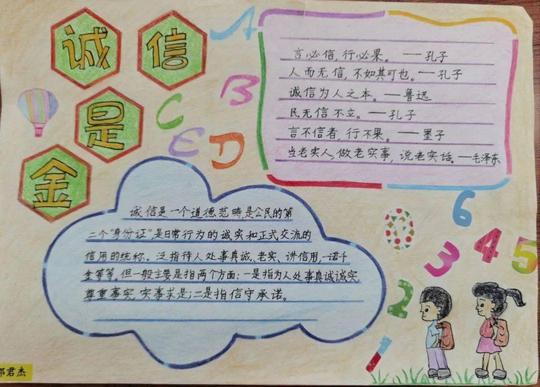 诚信
是
金
A
B
C
E D
言必信，行必果。——孔子
人而无信，不如其可也。——孔子
诚信为人之本。——鲁迅
民无信不立。——孔子
言不信者，行不果。——墨子
当老实人，做老实事，说老实话。——毛泽东
诚信是一个道德范畴，是公民的第
二个"身份证"是日常行为的诚实和正式交流的
信用的统称。泛指待人处事真诚、老实、讲信用，一诺千
金等等。但一般主要是指两个方面：一是指为人处事真诚诚实
尊重事实，实事求是；二是指信守承诺。
6
5
4
3
2
1
君杰